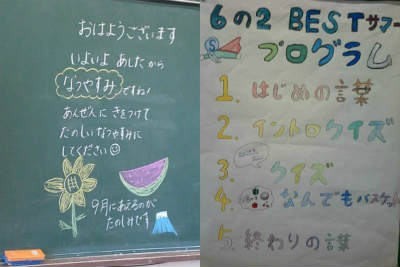 おはようございます
いよいよ あしたから
なつやすみですね!
あんぜんに きをつけて
たのしいなつやすみに
してください
9月にあえるのが
たのしみです
6の2 BESTサマー
プログラム
1. はじめの言葉
2. イントロクイズ
3. クイズ
4. なんでもバスケット
5. 終わりの言葉